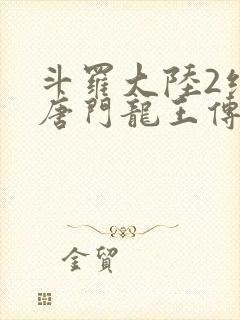 斗羅大陸2絕
唐門龍王傳
金貿